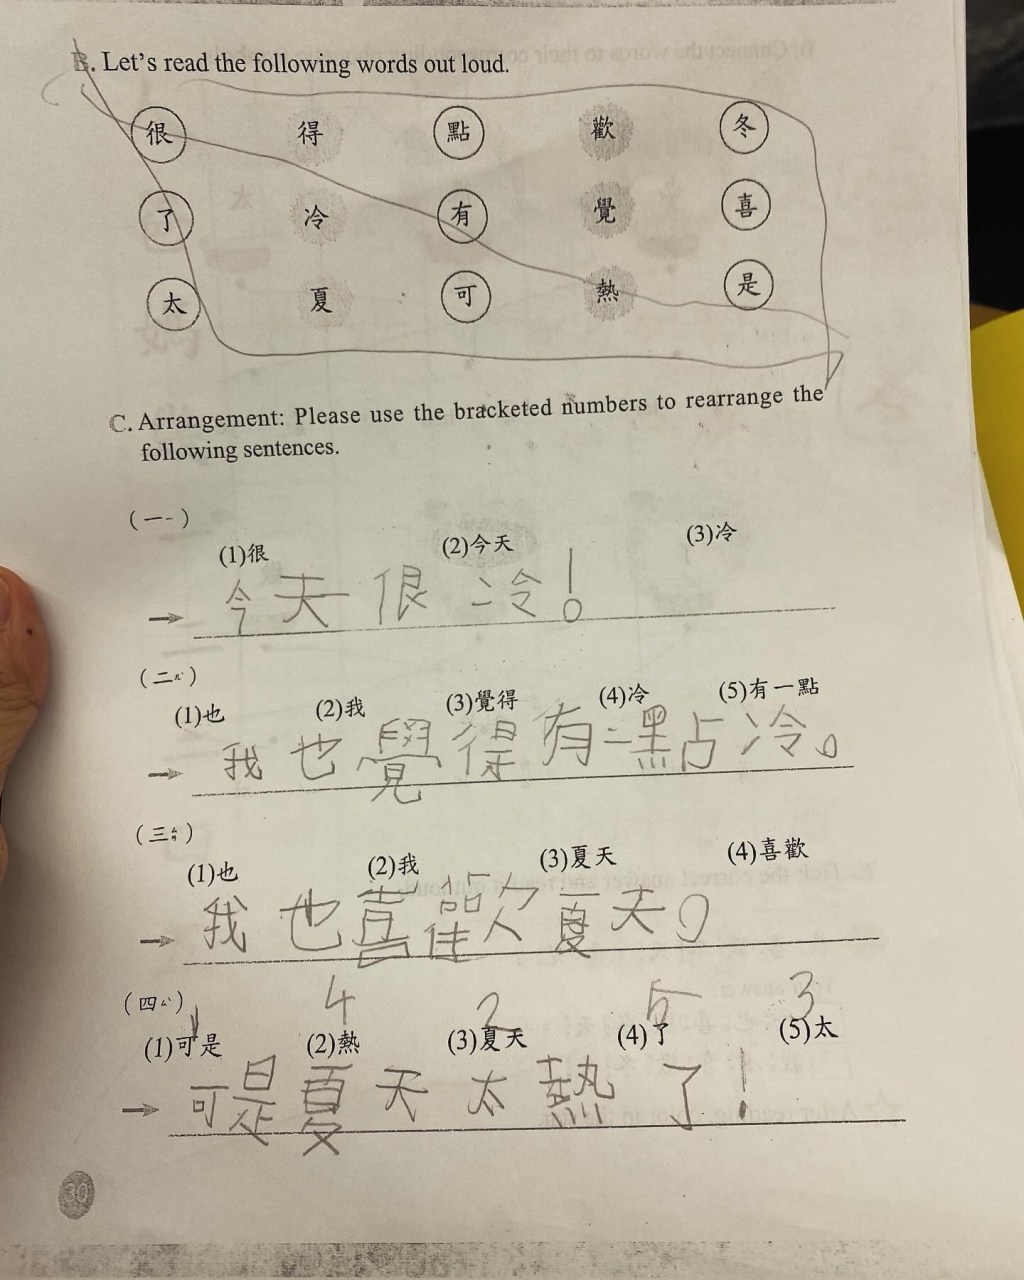 B. Let's read the following words out loud.
很 得 點 歡 冬
了 冷 有 覺 喜
太 夏 可 熱 是
C. Arrangement: Please use the bracketed numbers to rearrange the
following sentences.
(一ㄧ)
(1)很 (2)今天 (3)冷
→ 今天很冷!
(二ㄦˋ)
(1)也 (2)我 (3)覺得 (4)冷 (5)有一點
→ 我也覺得有一點冷。
(三ㄙㄢ)
(1)也 (2)我 (3)夏天 (4)喜歡
→ 我也喜歡夏天。
(四ㄙˋ)
1 4 2 5 3
(1)可是 (2)熱 (3)夏天 (4)了 (5)太
→ 可是夏天太熱了!
30